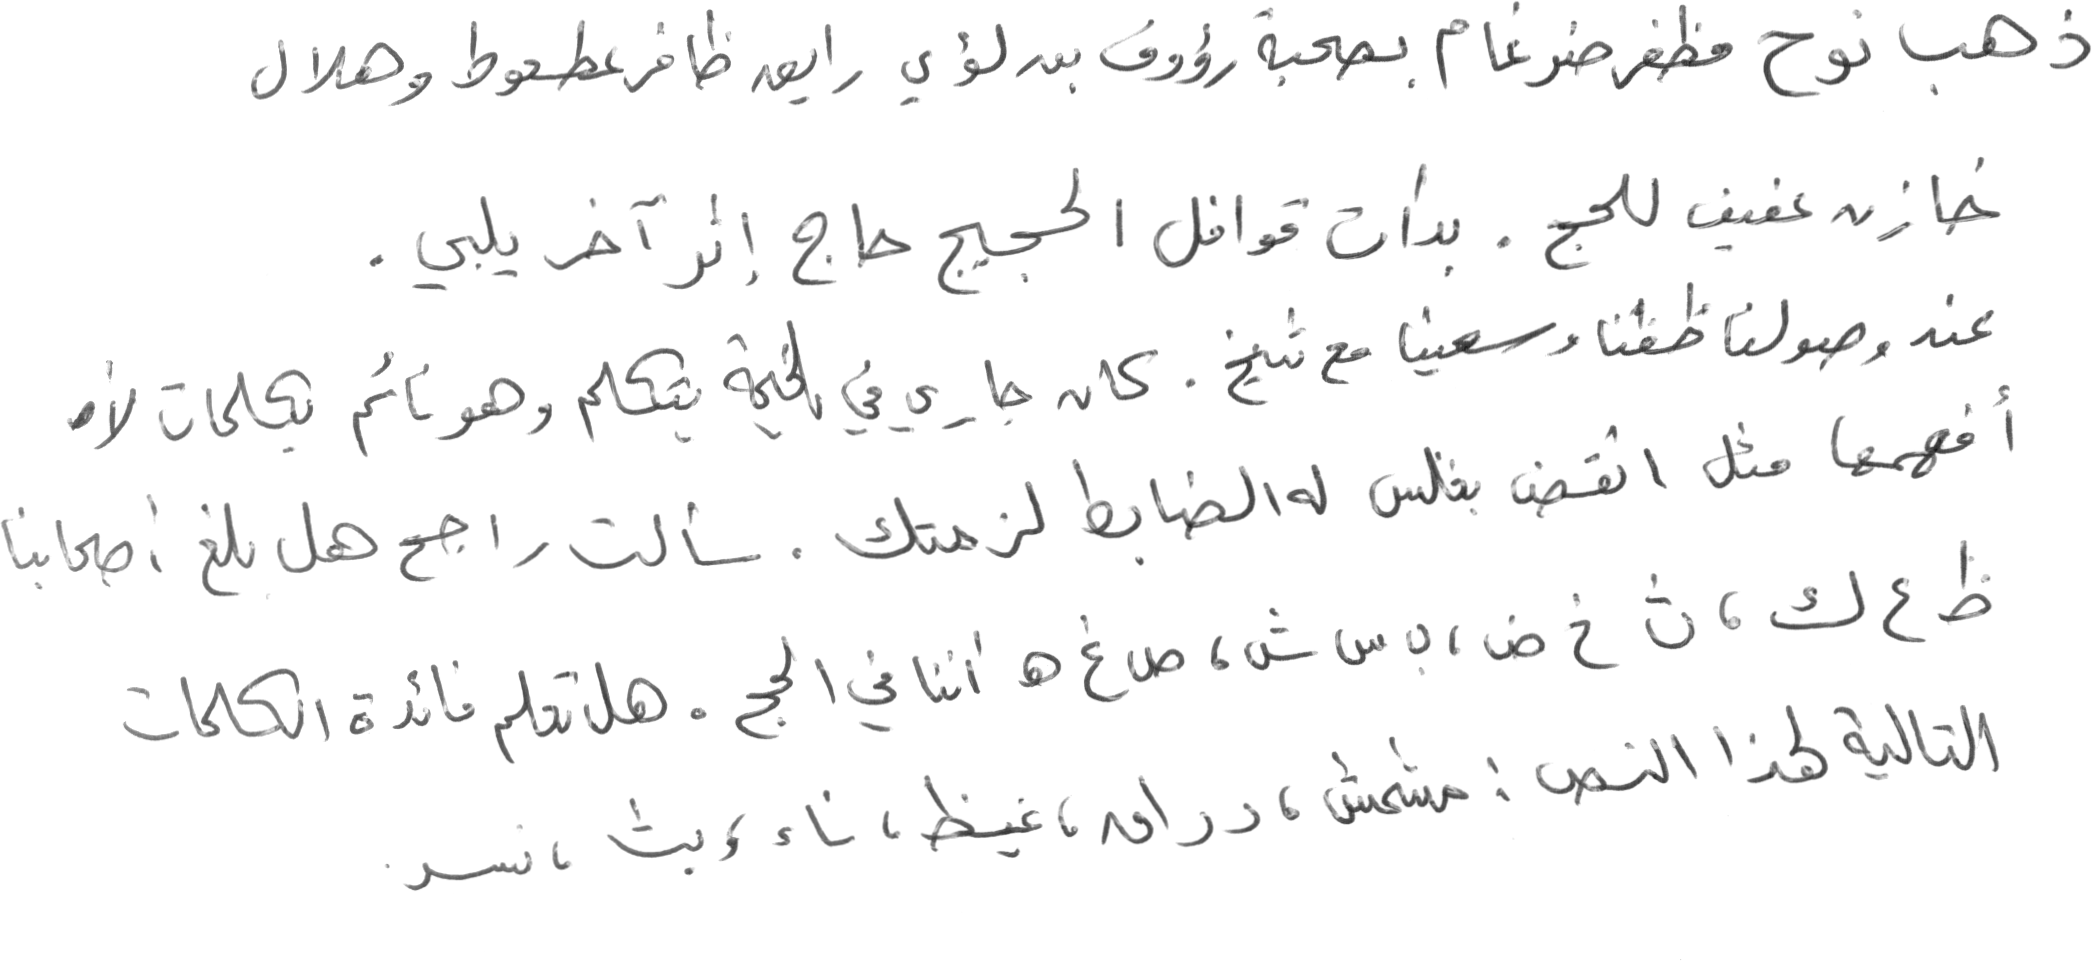 ذهب نوح مظفر ضرغام بصحبة رؤوف بن لؤي رايق ظافر عطعوط وهلال
خازن عفيف للحج . بدأت قوافل الحجيج حاج إثر آخر يلبي .
عند وصولنا طفنا وسعينا مع شيخ . كان جاري في الخيمة يتكلم وهو نائم بكلمات لا
أفهمها مثل انقض بغلس له الضابط لزمتك . سألت راجح هل بلغ أصحابنا
ظ ع ك ، ث خ ض ، ب س ش ، ص غ ه أننا في الحج . هل تعلم فائدة الكلمات
التالية لهذا النص : مشمش ، دراق ، غيظ ، ناء ، بث ، نسر .